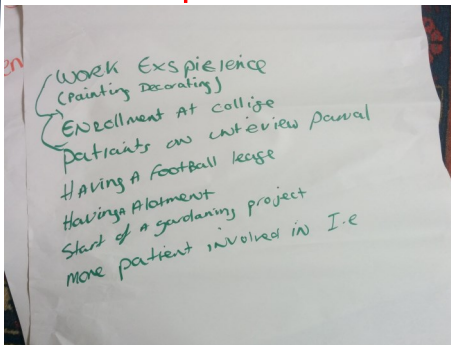 en
WORK EXSPIERENCE
(Painting Decorating)
Enrollment At collige
patiants on unteview panal
HAving A Football leage
Having A Alotment
Start of a gardaning project
more patient involved in I.e